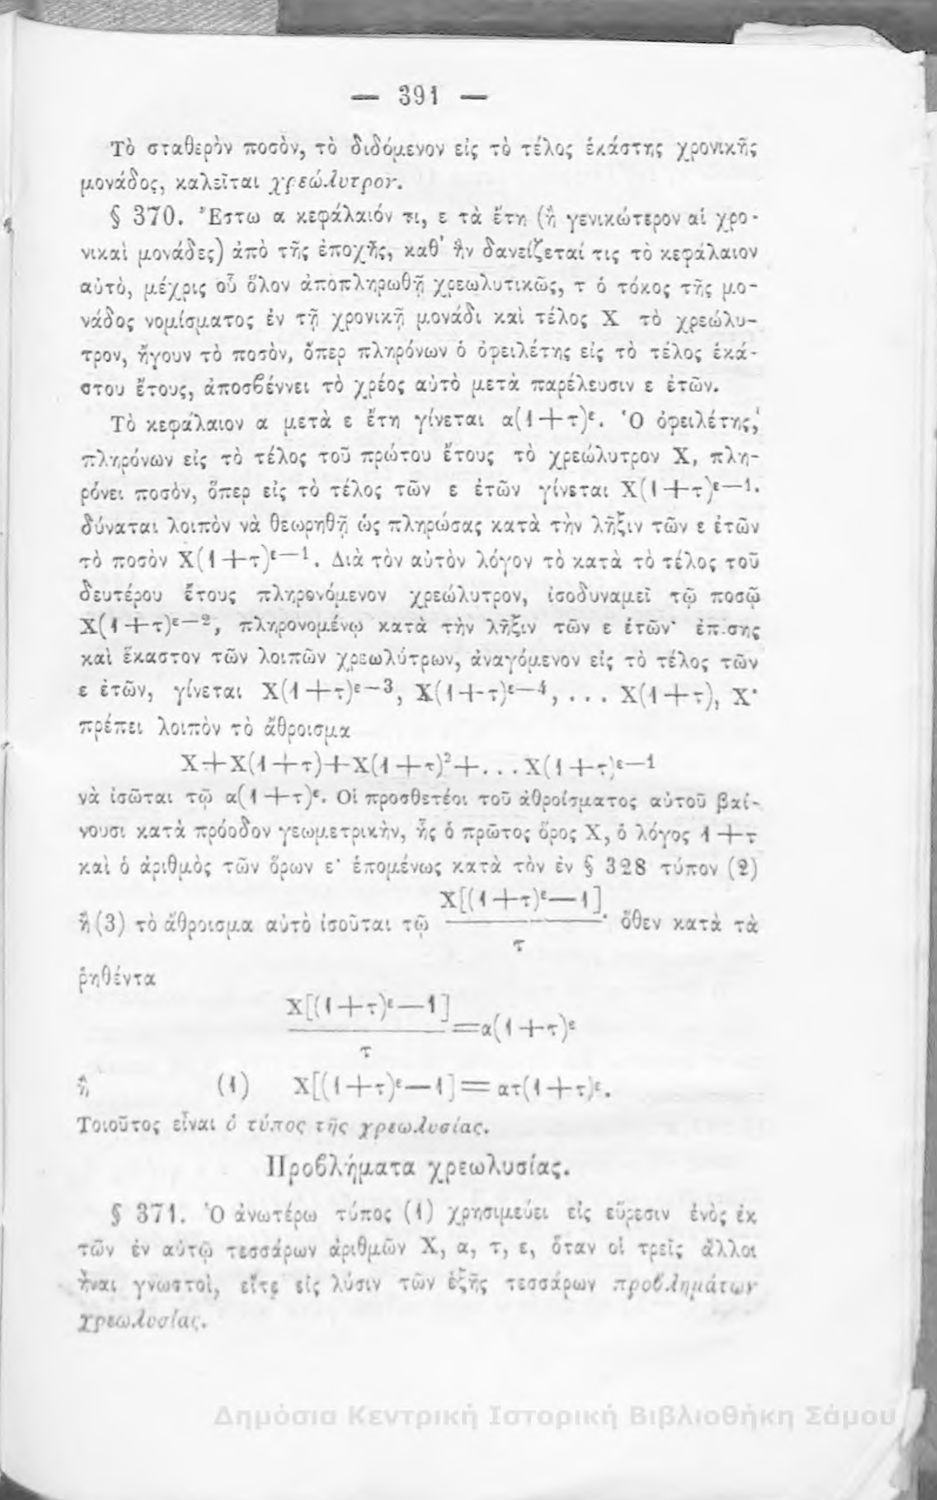 — 391 —
Τὸ σταθερὸν ποσὸν, τὸ διδόμενον εἰς τὸ τέλος ἑκάστης χρονικῆς
μονάδος, καλεῖται χρεώλυτρον.
§ 370. Ἔστω α κεφάλαιόν τι, ε τὰ ἔτη (ἢ γενικώτερον αἱ χρο-
νικαὶ μονάδες) ἀπὸ τῆς ἐποχῆς, καθ’ ἣν δανείζεταί τις τὸ κεφάλαιον
αὐτὸ, μέχρις οὗ ὅλον ἀποπληρωθῇ χρεωλυτικῶς, τ ὁ τόκος τῆς μο-
νάδος νομίσματος ἐν τῇ χρονικῇ μονάδι καὶ τέλος Χ τὸ χρεώλυ-
τρον, ἤγουν τὸ ποσὸν, ὅπερ πληρόνων ὁ ὀφειλέτης εἰς τὸ τέλος ἑκά-
στου ἔτους, ἀποσβέννει τὸ χρέος αὐτὸ μετὰ παρέλευσιν ε ἐτῶν.
Τὸ κεφάλαιον α μετὰ ε ἔτη γίνεται α(1+τ)ᵋ. Ὁ ὀφειλέτης,
πληρόνων εἰς τὸ τέλος τοῦ πρώτου ἔτους τὸ χρεώλυτρον Χ, πλη-
ρόνει ποσὸν, ὅπερ εἰς τὸ τέλος τῶν ε ἐτῶν γίνεται Χ(1+τ)ᵋ⁻¹.
δύναται λοιπὸν νὰ θεωρηθῇ ὡς πληρώσας κατὰ τὴν λῆξιν τῶν ε ἐτῶν
τὸ ποσὸν Χ(1+τ)ᵋ⁻¹. Διὰ τὸν αὐτὸν λόγον τὸ κατὰ τὸ τέλος τοῦ
δευτέρου ἔτους πληρονόμενον χρεώλυτρον, ἰσοδυναμεῖ τῷ ποσῷ
Χ(1+τ)ᵋ⁻², πληρονομένῳ κατὰ τὴν λῆξιν τῶν ε ἐτῶν· ἐπίσης
καὶ ἕκαστον τῶν λοιπῶν χρεωλύτρων, ἀναγόμενον εἰς τὸ τέλος τῶν
ε ἐτῶν, γίνεται Χ(1+τ)ᵋ⁻³, Χ(1+τ)ᵋ⁻⁴, ... Χ(1+τ), Χ·
πρέπει λοιπὸν τὸ ἄθροισμα
Χ+Χ(1+τ)+Χ(1+τ)²+...Χ(1+τ)ᵋ⁻¹
νὰ ἰσῶται τῷ α(1+τ)ᵋ. Οἱ προσθετέοι τοῦ ἀθροίσματος αὐτοῦ βαί-
νουσι κατὰ πρόοδον γεωμετρικὴν, ἧς ὁ πρῶτος ὅρος Χ, ὁ λόγος 1+τ
καὶ ὁ ἀριθμὸς τῶν ὅρων ε· ἑπομένως κατὰ τὸν ἐν § 328 τύπον (2)
ἢ (3) τὸ ἄθροισμα αὐτὸ ἰσοῦται τῷ Χ[(1+τ)ᵋ—1]/τ· ὅθεν κατὰ τὰ
ῥηθέντα
Χ[(1+τ)ᵋ—1]/τ=α(1+τ)ᵋ
ἢ (1) Χ[(1+τ)ᵋ—1]=ατ(1+τ)ᵋ.
Τοιοῦτος εἶναι ὁ τύπος τῆς χρεωλυσίας.
Προβλήματα χρεωλυσίας.
§ 371. Ὁ ἀνωτέρω τύπος (1) χρησιμεύει εἰς εὕρεσιν ἑνὸς ἐκ
τῶν ἐν αὐτῷ τεσσάρων ἀριθμῶν Χ, α, τ, ε, ὅταν οἱ τρεῖς ἄλλοι
ἦναι γνωστοὶ, εἴτε εἰς λύσιν τῶν ἑξῆς τεσσάρων προβλημάτων
χρεωλυσίας.
Δημόσια Κεντρική Ιστορική Βιβλιοθήκη Σάμου